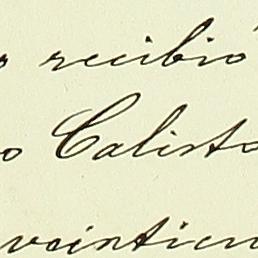 o recibió
o Calisto
veintiun